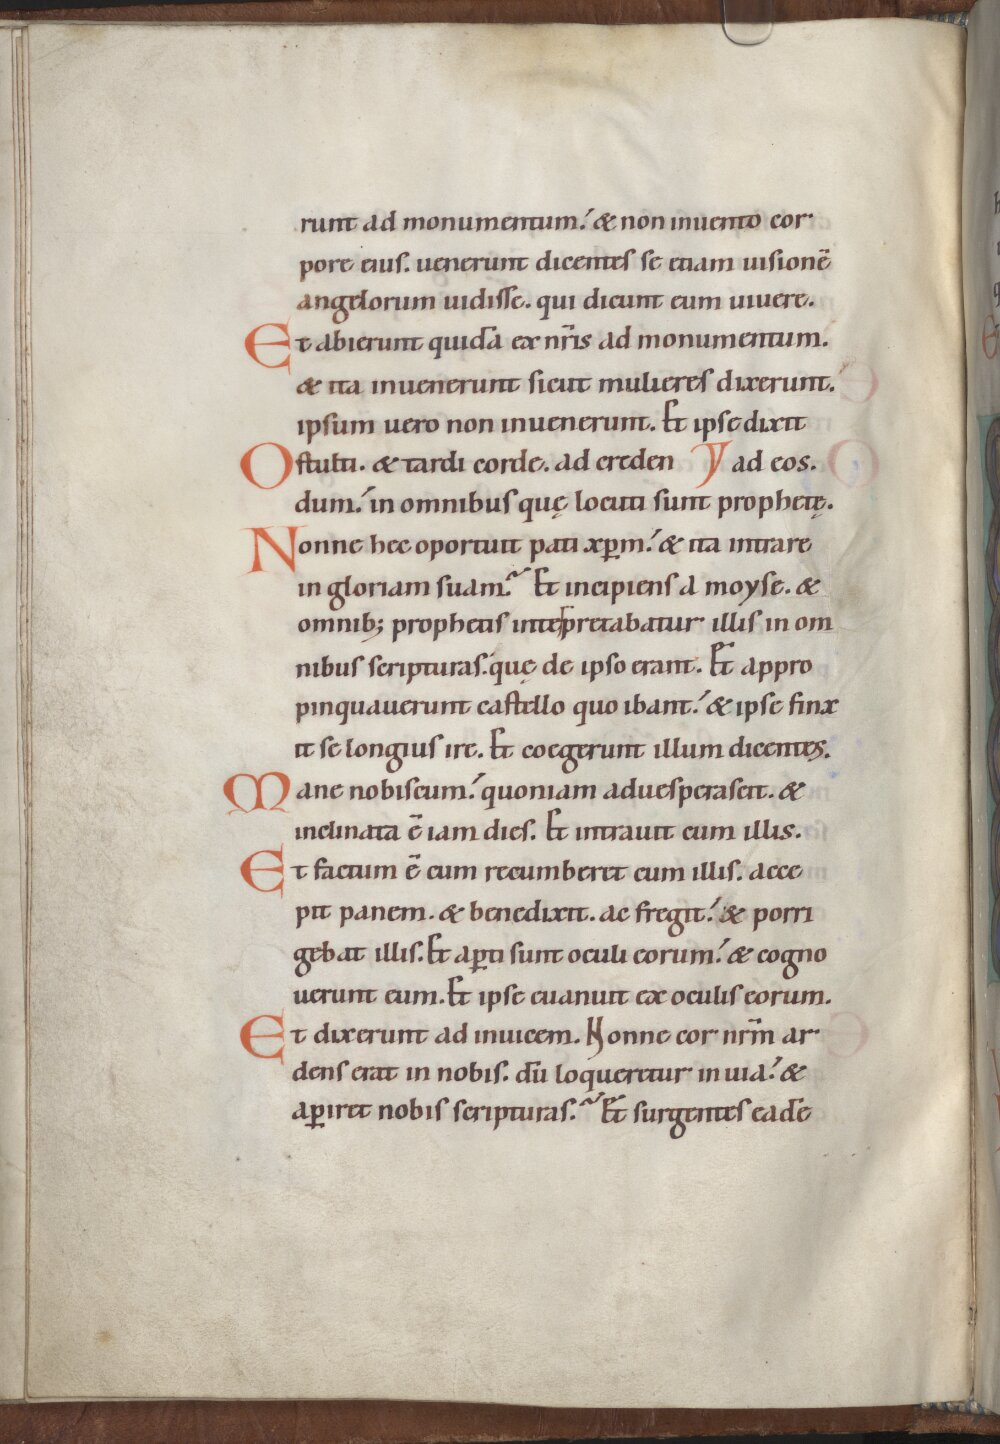 runt ad monumentum. & non inuento cor
pore eius. uenerunt dicentes se etiam uisionē
angelorum uidisse. qui dicunt eum uiuere.
Et abierunt quidā ex nr̄is ad monumentum.
& ita inuenerunt sicut mulieres dixerunt.
ipsum uero non inuenerunt. Et ipse dixit
O stulti. & tardi corde. ad creden y ad eos.
dum. in omnibus quę locuti sunt prophetę.
Nonne hec oportuit pati xp̄m. & ita intrare
in gloriam suam. Et incipiens a moyse. &
omnib; prophetis interpretabatur illis in om
nibus scripturas. quę de ipso erant. Et appro
pinquauerunt castello quo ibant. & ipse finx
it se longius ire. Et coegerunt illum dicentes.
Mane nobiscum. quoniam aduesperascit. &
inclinata ē iam dies. Et intrauit cum illis.
Et factum ē cum recumberet cum illis. acce
pit panem. & benedixit. ac fregit. & porri
gebat illis. Et ap̄ti sunt oculi eorum. & cogno
uerunt eum. Et ipse euanuit ex oculis eorum.
Et dixerunt ad inuicem. Nonne cor nr̄m ar
dens erat in nobis. dū loqueretur in uia. &
ap̄iret nobis scripturas. Et surgentes eadē